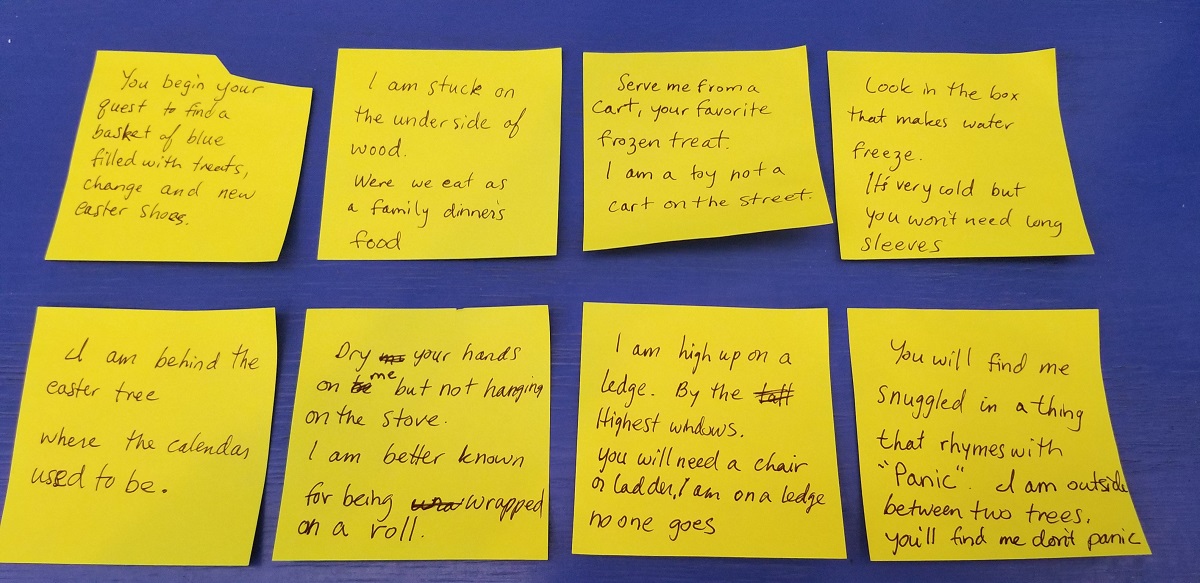 You begin your
quest to find a
basket of blue
filled with treats,
change and new
easter shoes.
I am stuck on
the underside of
wood.
Were we eat as
a family dinner's
food
Serve me from a
cart, your favorite
frozen treat.
I am a toy not a
cart on the street.
Look in the box
that makes water
freeze.
It's very cold but
you won't need long
sleeves
I am behind the
easter tree
where the calendar
used to be.
Dry me your hands
on me but not hanging
on the stove.
I am better known
for being wrapped
on a roll.
I am high up on a
ledge. By the tall
Highest windows.
you will need a chair
or ladder, I am on a ledge
no one goes
You will find me
snuggled in a thing
that rhymes with
"Panic". I am outside
between two trees.
you'll find me don't panic